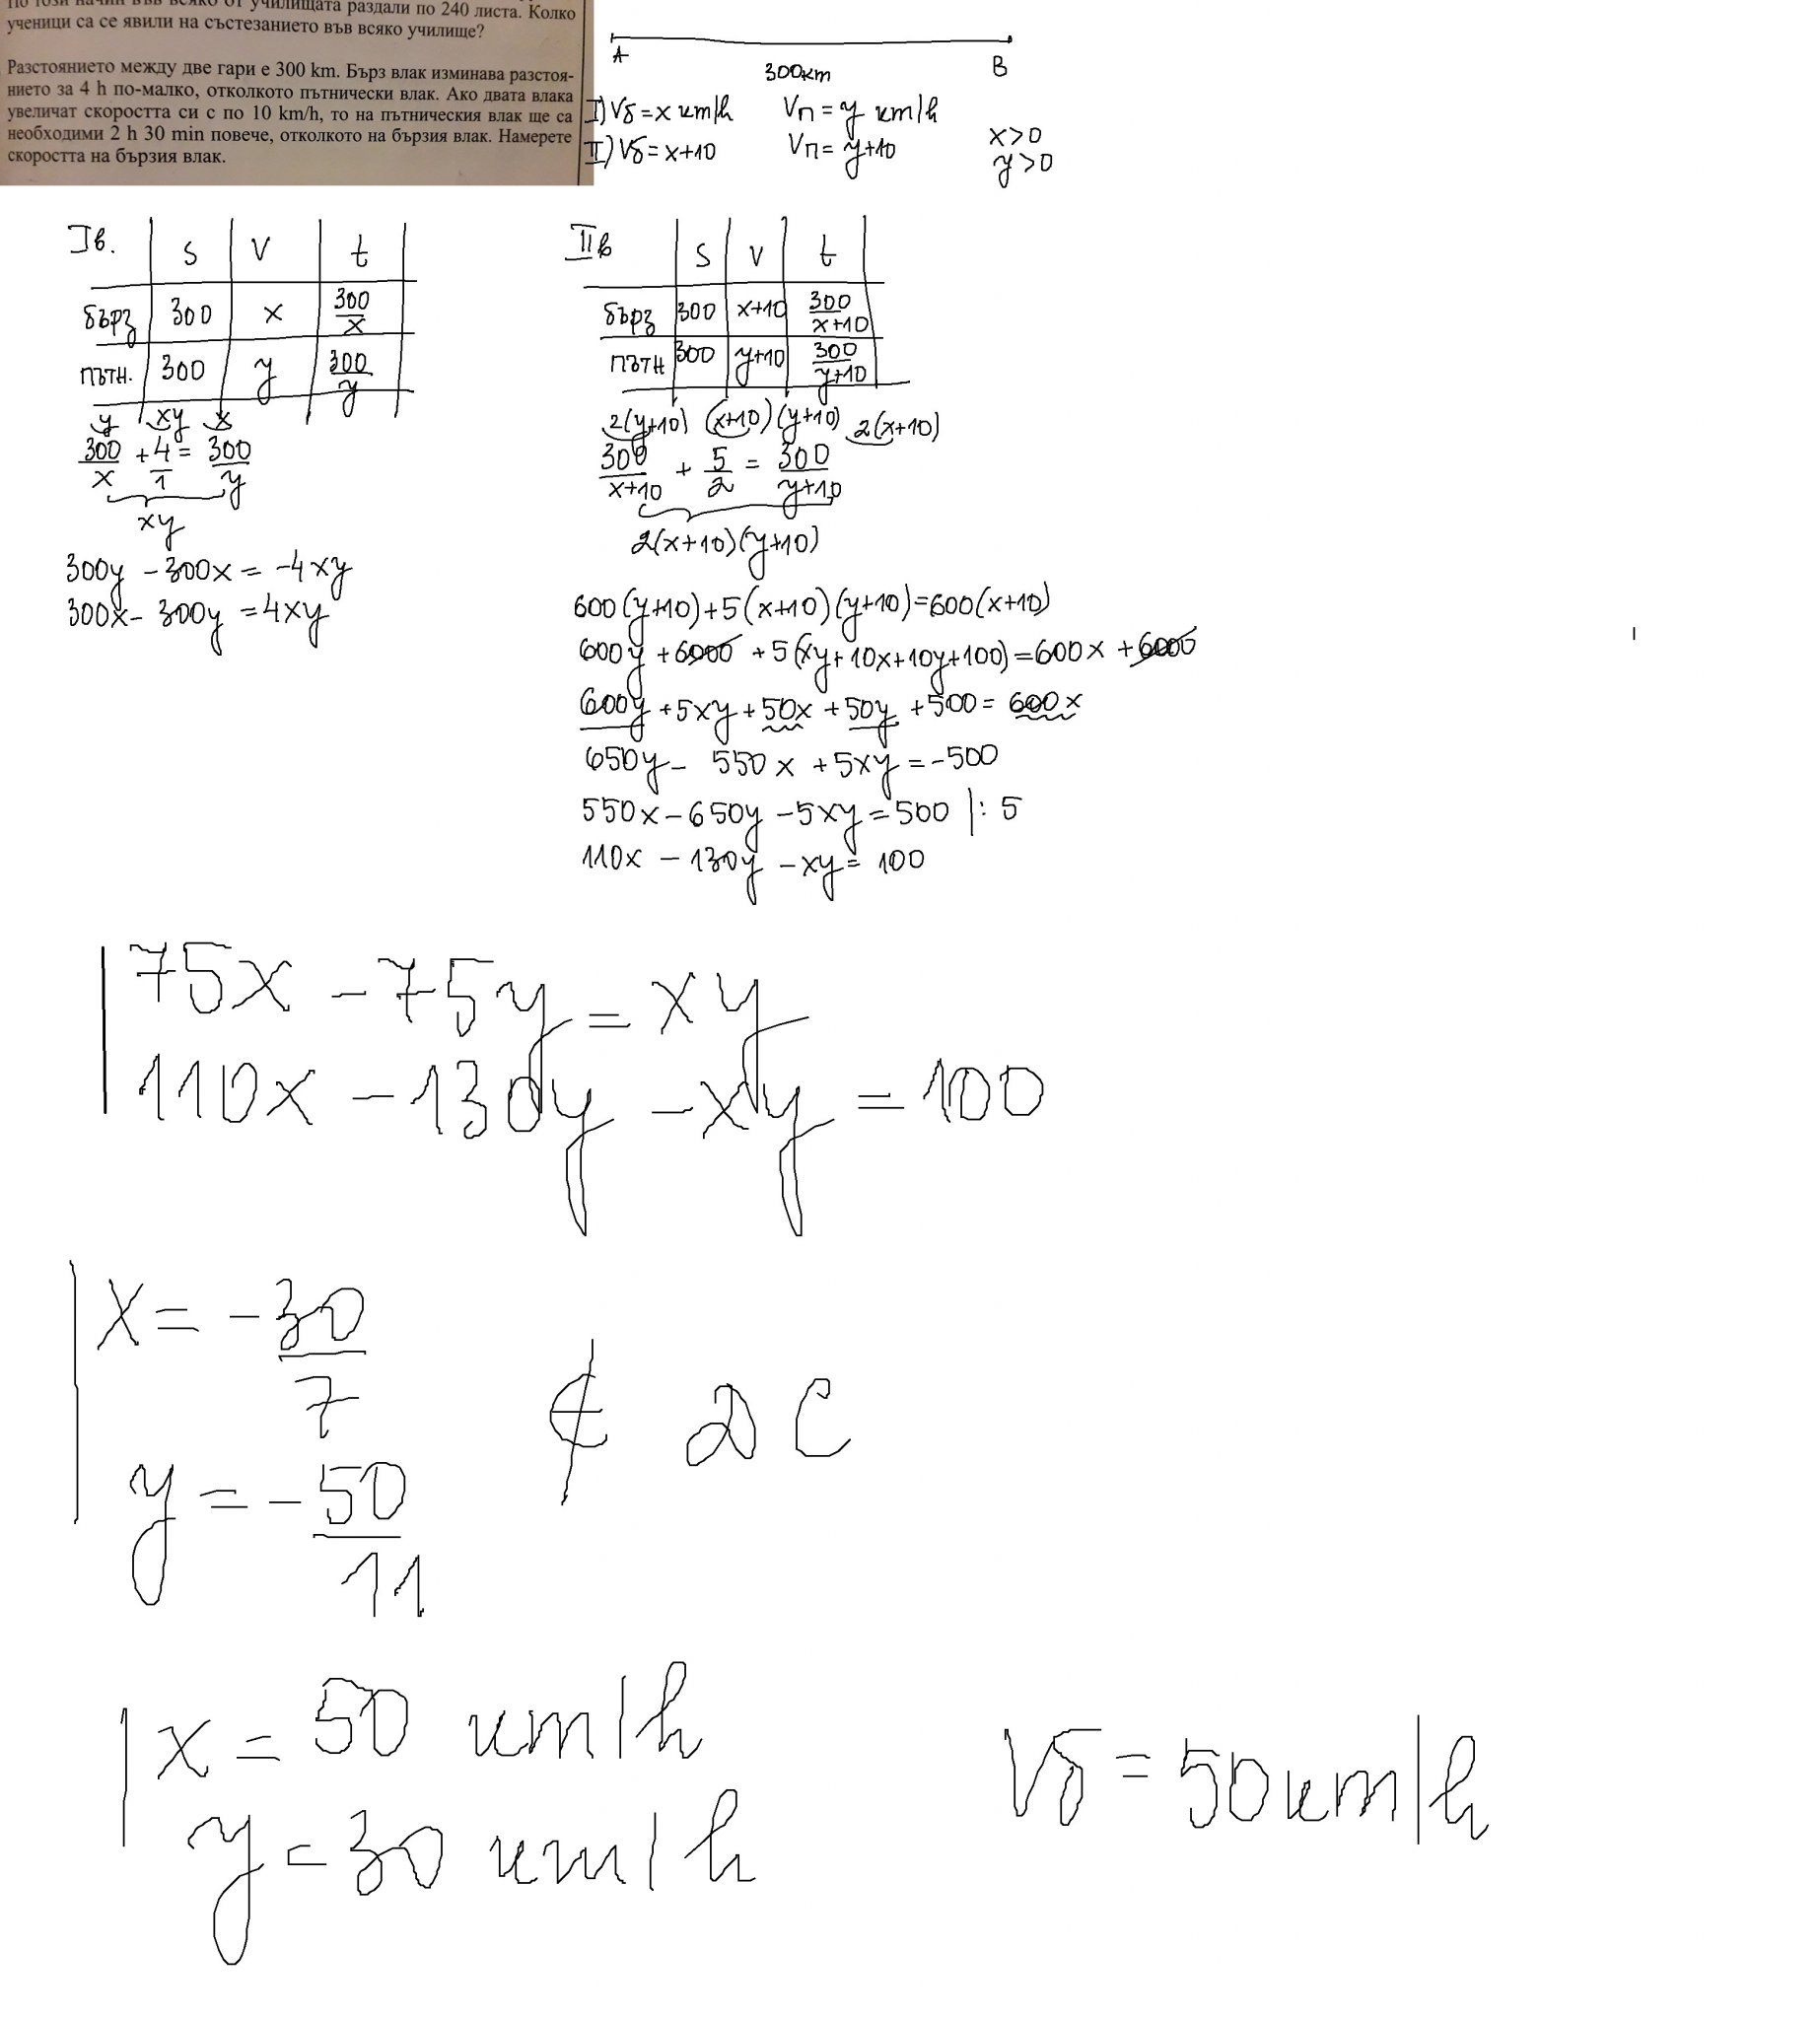 По този начин във всяко от училищата раздали по 240 листа. Колко
ученици са се явили на състезанието във всяко училище?
Разстоянието между две гари е 300 km. Бърз влак изминава разстоя-
нието за 4 h по-малко, отколкото пътнически влак. Ако двата влака
увеличат скоростта си с по 10 km/h, то на пътническия влак ще са
необходими 2 h 30 min повече, отколкото на бързия влак. Намерете
скоростта на бързия влак.
A B
300km
I) Vб = x km/h Vп = y km/h
II) Vб = x+10 Vп = y+10
x>0
y>0
Iв. S V t
бърз 300 x 300/x
пътн. 300 y 300/y
y xy x
300/x + 4/1 = 300/y
xy
300y - 300x = -4xy
300x - 300y = 4xy
IIв S V t
бърз 300 x+10 300/x+10
пътн 300 y+10 300/y+10
2(y+10) (x+10)(y+10) 2(x+10)
300/x+10 + 5/2 = 300/y+10
2(x+10)(y+10)
600(y+10)+5(x+10)(y+10)=600(x+10)
600y + 6000 + 5(xy+10x+10y+100) = 600x + 6000
600y + 5xy + 50x + 50y + 500 = 600x
650y - 550x + 5xy = -500
550x - 650y - 5xy = 500 |: 5
110x - 130y - xy = 100
75x - 75y = xy
110x - 130y - xy = 100
x = -30/7
y = -50/11
∉ ДС
x = 50 km/h
y = 30 km/h
Vб = 50 km/h